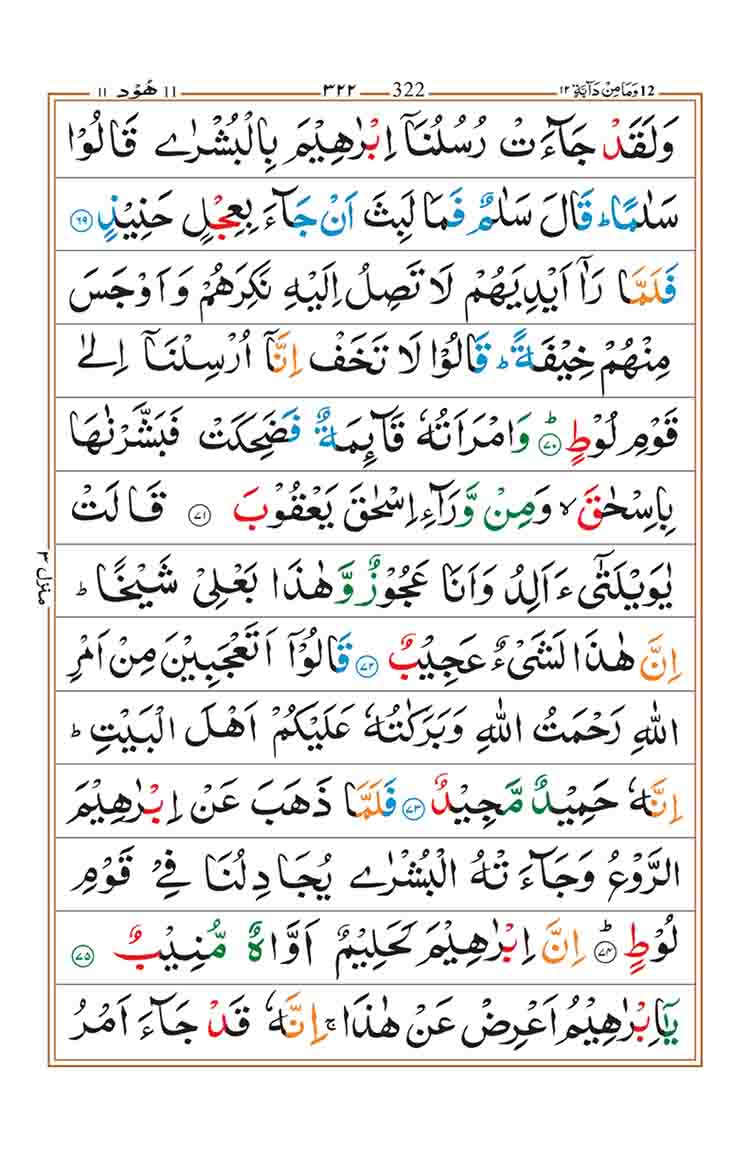 12 وَمَا مِنْ دَآبَّةٍ ١٢ 322 ٣٢٢ 11 هُوْد ١١
وَلَقَدْ جَآءَتْ رُسُلُنَاۤ اِبْرٰهِيْمَ بِالْبُشْرٰى قَالُوْا
سَلٰمًا ؕ قَالَ سَلٰمٌ فَمَا لَبِثَ اَنْ جَآءَ بِعِجْلٍ حَنِيْذٍ ۝٦٩
فَلَمَّا رَاٰۤ اَيْدِيَهُمْ لَا تَصِلُ اِلَيْهِ نَكِرَهُمْ وَاَوْجَسَ
مِنْهُمْ خِيْفَةً ؕ قَالُوْا لَا تَخَفْ اِنَّاۤ اُرْسِلْنَاۤ اِلٰى
قَوْمِ لُوْطٍ ۝٧٠ؕ وَامْرَاَتُهٗ قَآئِمَةٌ فَضَحِكَتْ فَبَشَّرْنٰهَا
بِاِسْحٰقَ ۙ وَمِنْ وَّرَآءِ اِسْحٰقَ يَعْقُوْبَ ۝٧١ قَالَتْ
يٰوَيْلَتٰٓى ءَاَلِدُ وَاَنَا عَجُوْزٌ وَّهٰذَا بَعْلِىْ شَيْخًا ؕ
اِنَّ هٰذَا لَشَىْءٌ عَجِيْبٌ ۝٧٢ قَالُوْۤا اَتَعْجَبِيْنَ مِنْ اَمْرِ
اللّٰهِ رَحْمَتُ اللّٰهِ وَبَرَكٰتُهٗ عَلَيْكُمْ اَهْلَ الْبَيْتِ ؕ
اِنَّهٗ حَمِيْدٌ مَّجِيْدٌ ۝٧٣ فَلَمَّا ذَهَبَ عَنْ اِبْرٰهِيْمَ
الرَّوْعُ وَجَآءَتْهُ الْبُشْرٰى يُجَادِلُنَا فِىْ قَوْمِ
لُوْطٍ ۝٧٤ؕ اِنَّ اِبْرٰهِيْمَ لَحَلِيْمٌ اَوَّاهٌ مُّنِيْبٌ ۝٧٥
يٰۤاِبْرٰهِيْمُ اَعْرِضْ عَنْ هٰذَا ۚ اِنَّهٗ قَدْ جَآءَ اَمْرُ
منزل ٣